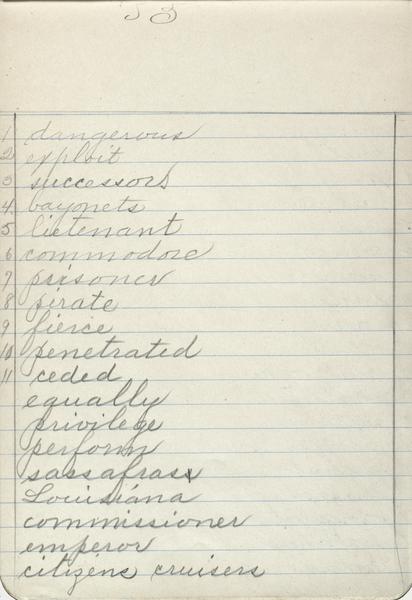 53
1 dangerous
2 exploit
3 successors
4 bayonets
5 lietenant
6 commodore
7 prisoner
8 pirate
9 fierce
10 penetrated
11 ceded
equally
privilege
perform
sassafrass
Louisiana
commissioner
emperor
citizens cruisers